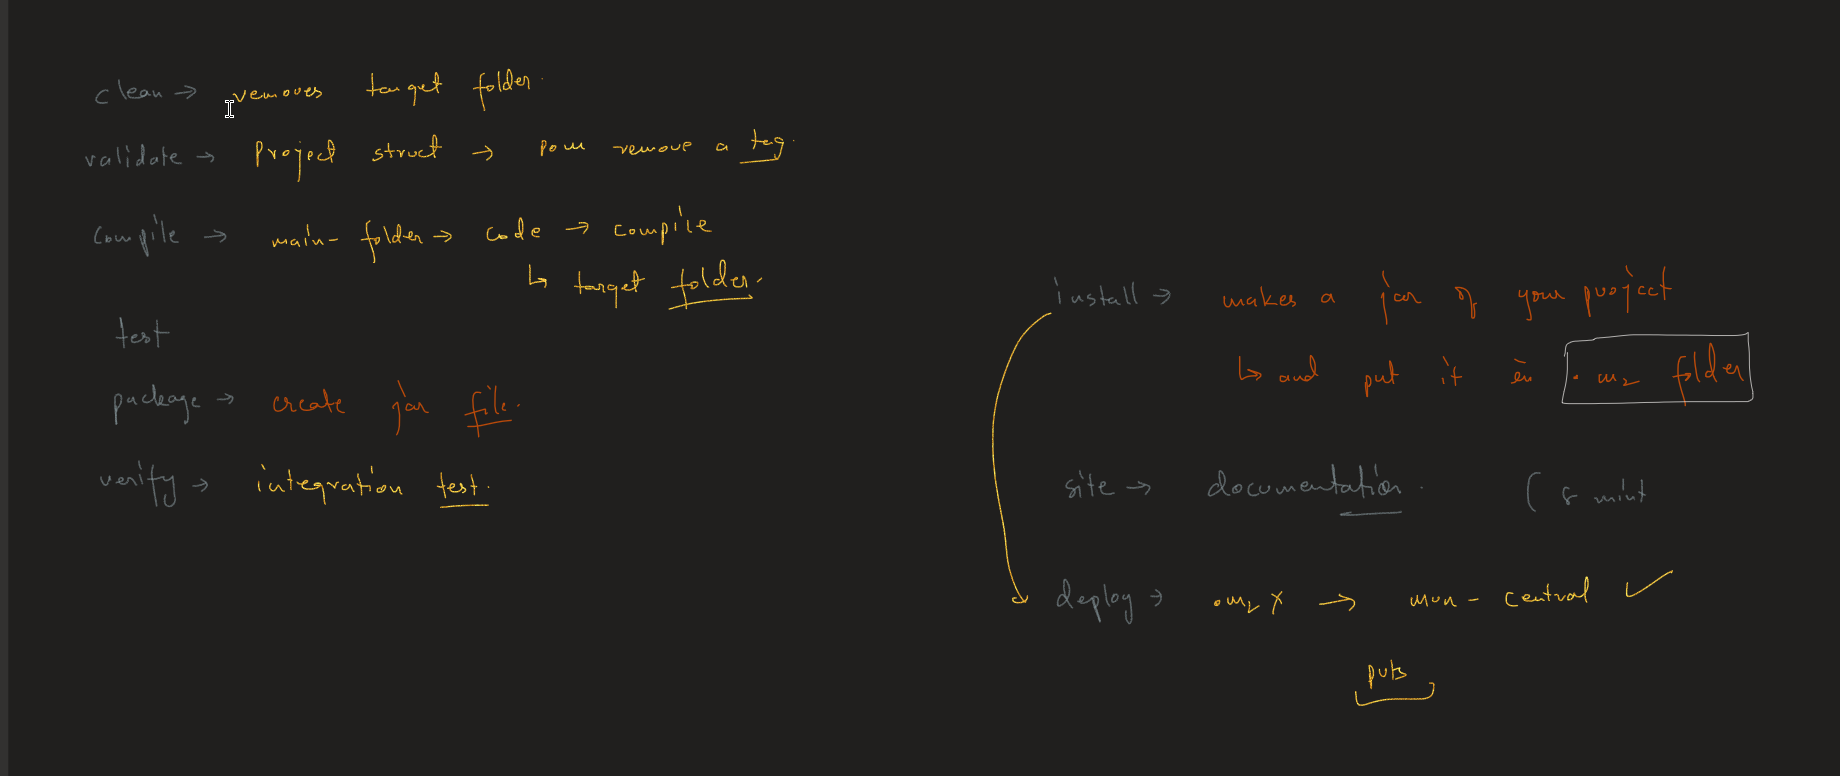 clean → removes target folder.
validate → Project struct → pom remove a tag.
compile → main-folder → code → compile
↳ target folder.
test
package → create jar file.
verify → integration test.
install → makes a jar of your project
↳ and put it in .m2 folder
site → documentation. (
deploy → .m2 x → mvn-central ✓
puts